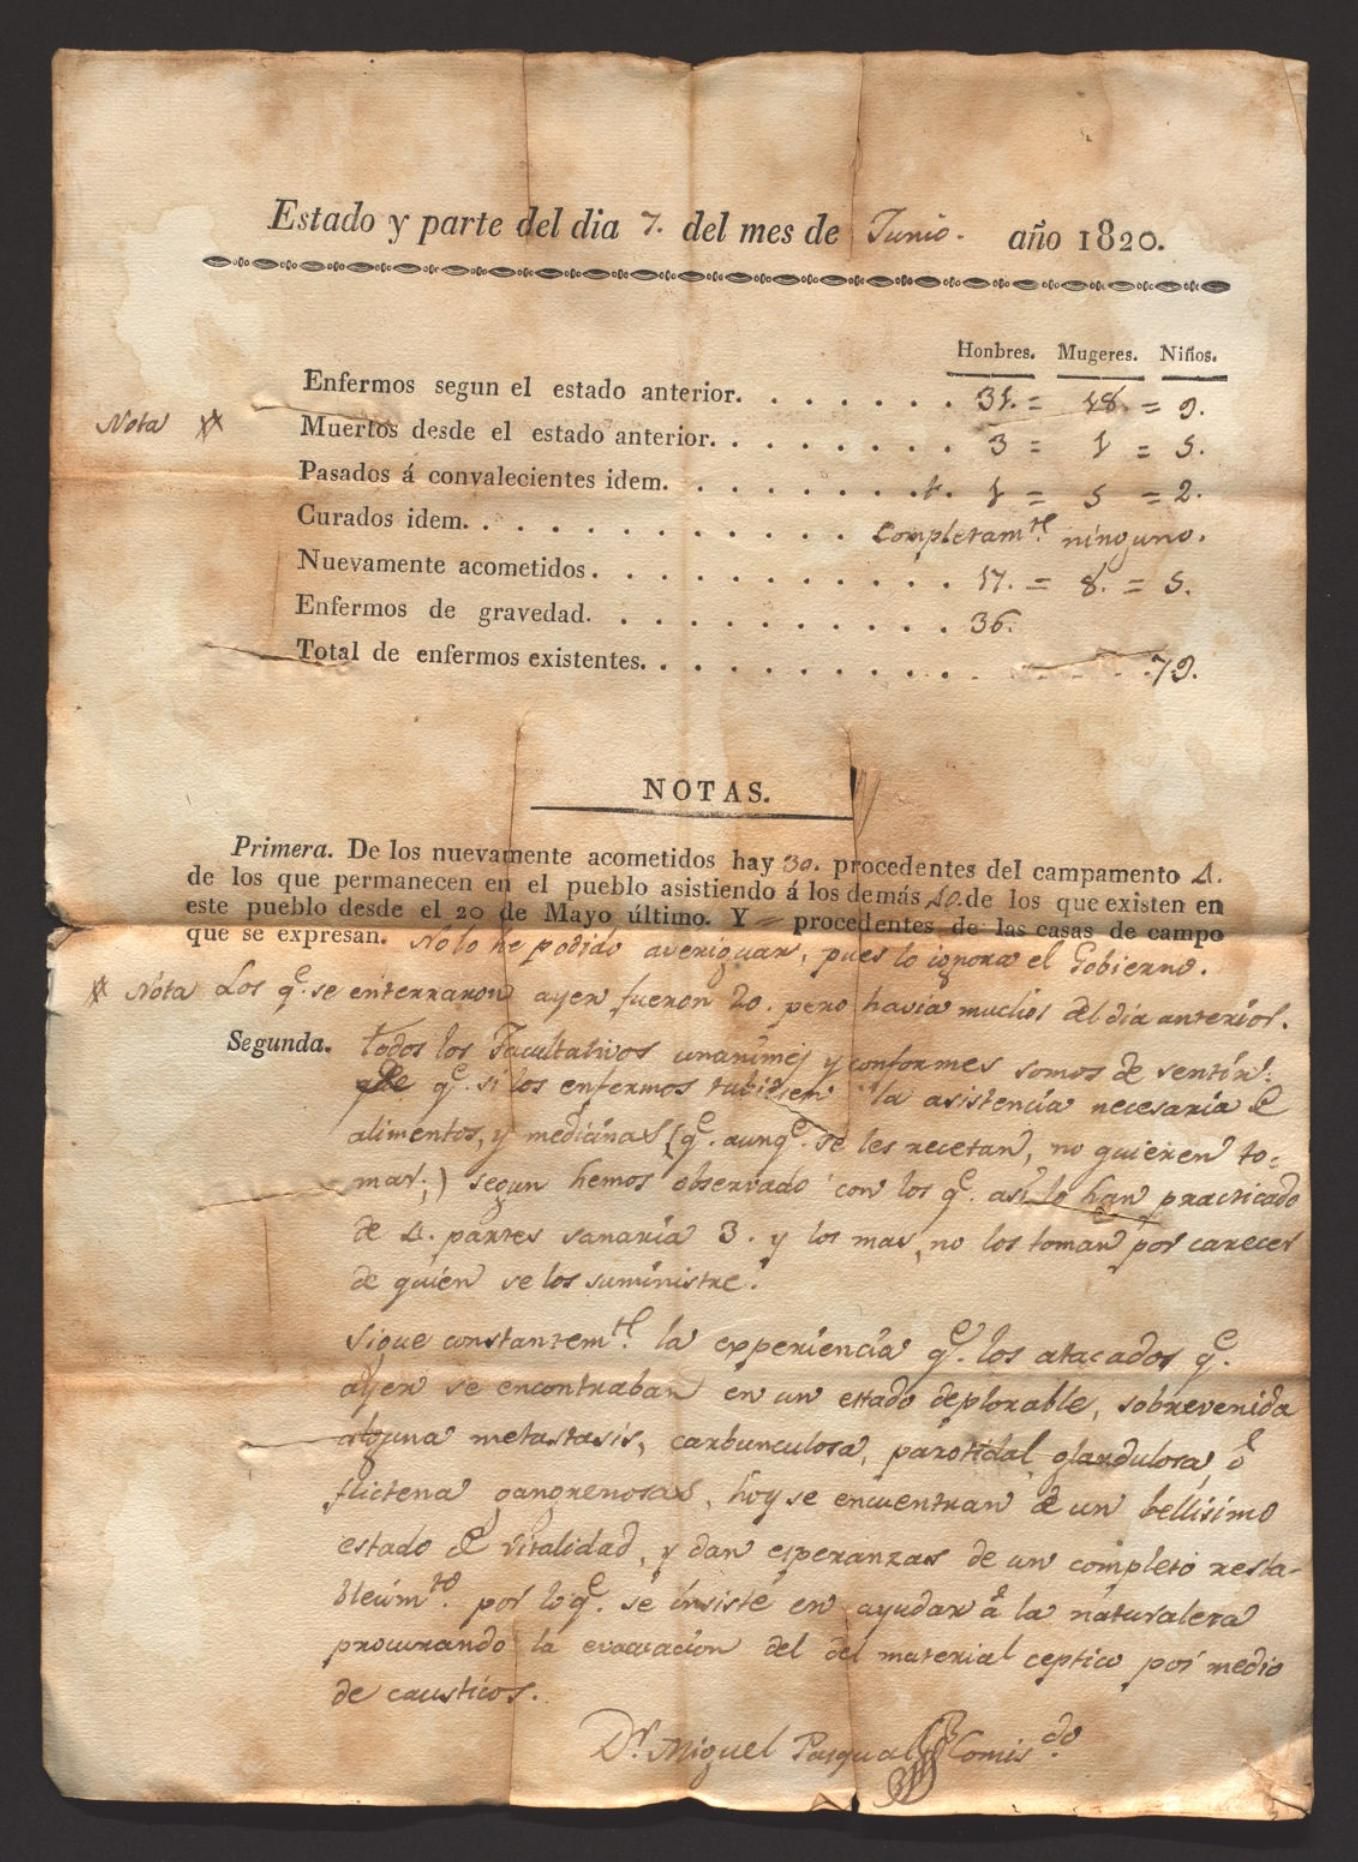 Estado y parte del dia 7. del mes de Junio. año 1820.
Honbres. Mugeres. Niños.
Enfermos segun el estado anterior. . . . . . . . 31. = 48. = 9.
Nota
Muertos desde el estado anterior. . . . . . . . . 3 = 1 = 5.
Pasados á convalecientes idem. . . . . . . . . 1 = 5 = 2.
Curados idem. . . . . . . . . . . Completamte. ninguno.
Nuevamente acometidos. . . . . . . . . . . 17. = 8. = 5.
Enfermos de gravedad. . . . . . . . . . . 36.
Total de enfermos existentes. . . . . . . . . . . . . . . 79.
NOTAS.
Primera. De los nuevamente acometidos hay 30. procedentes del campamento 4.
de los que permanecen en el pueblo asistiendo á los demás 40. de los que existen en
este pueblo desde el 20 de Mayo último. Y = procedentes de las casas de campo
que se expresan. No lo he podido averiguar, pues lo ignora el Gobierno.
Nota Los qe. se enterraron ayer fueron 20. pero havia muchos del dia anterior.
Segunda. Todos los Facultativos unanimes y conformes somos de sentir:
qe. si los enfermos tubiesen la asistencia necesaria de
alimentos, y medicinas (qe. aunqe. se les recetan, no quieren to=
mar;) segun hemos observado con los qe. asi lo han practicado
de 4. partes sanaria 3. y los mas, no los toman por carecer
de quien se los suministre.
Sigue constantemte. la experiencia qe. los atacados qe.
ayer se encontraban en un estado deplorable, sobrevenida
alguna metastasis, carbunculosa, parotidal glandulosa, ó
flictena gangrenosas, hoy se encuentran de un bellisimo
estado de vitalidad, y dan esperanzas de un completo resta-
blecimto. por lo qe. se insiste en ayudar á la naturaleza
procurando la evacuacion del del material ceptico por medio
de causticos.
Dr. Miguel Pasqual Comisdo.